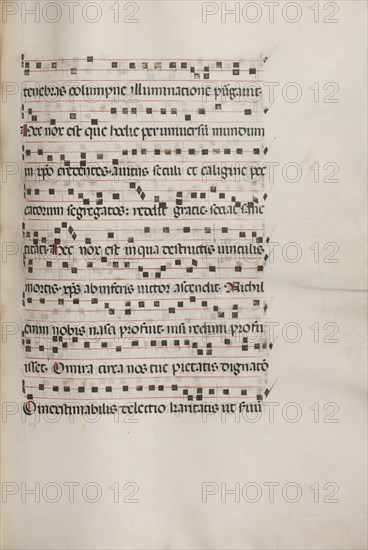 tenebras columpne illuminatione purgauit.
Hec nox est que hodie per uniuersū mundum
in xpo credentes. a uiciis seculi et caligine pec
catorum segregatos. reddit gracie. sociat sanc
titati. Hec nox est in qua destructis uinculis
mortis. xps ab inferis uictor ascendit. Nichil
enim nobis nasci profuit. nisi redimi profu
isset. O mira circa nos tue pietatis dignatō
O inextimabilis dilectio karitatis. ut
PHOTO 12
PHOTO 12
PHOTO 12
PHOTO 12
PHOTO 12
PHOTO 12